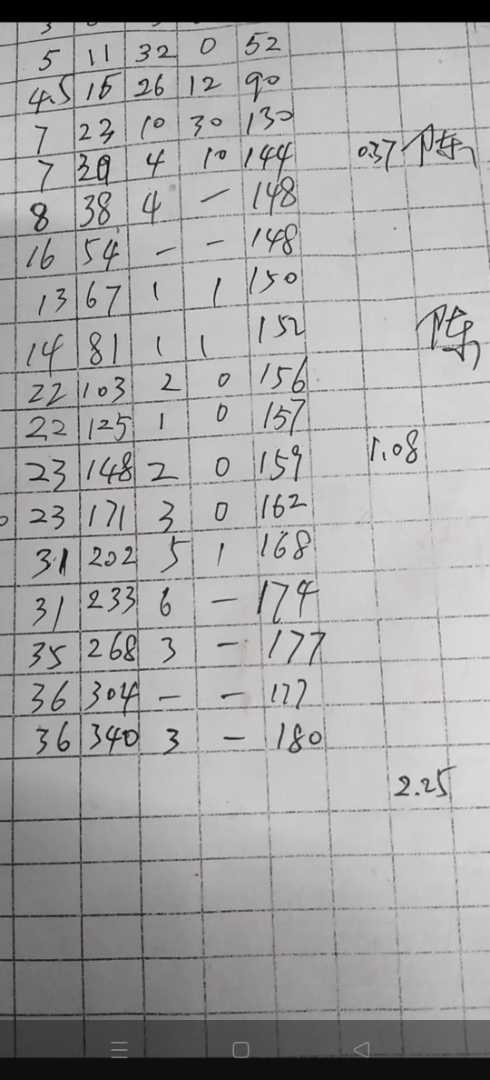 5 11 32 0 52
4.5 15 26 12 90
7 23 10 30 130
7 30 4 10 144 0.37
8 38 4 – 148
16 54 – – 148
13 67 1 1 150
14 81 1 1 152
22 103 2 0 156
22 125 1 0 157
23 148 2 0 159 1.08
23 171 3 0 162
31 202 5 1 168
31 233 6 – 174
35 268 3 – 177
36 304 – – 177
36 340 3 – 180
2.25